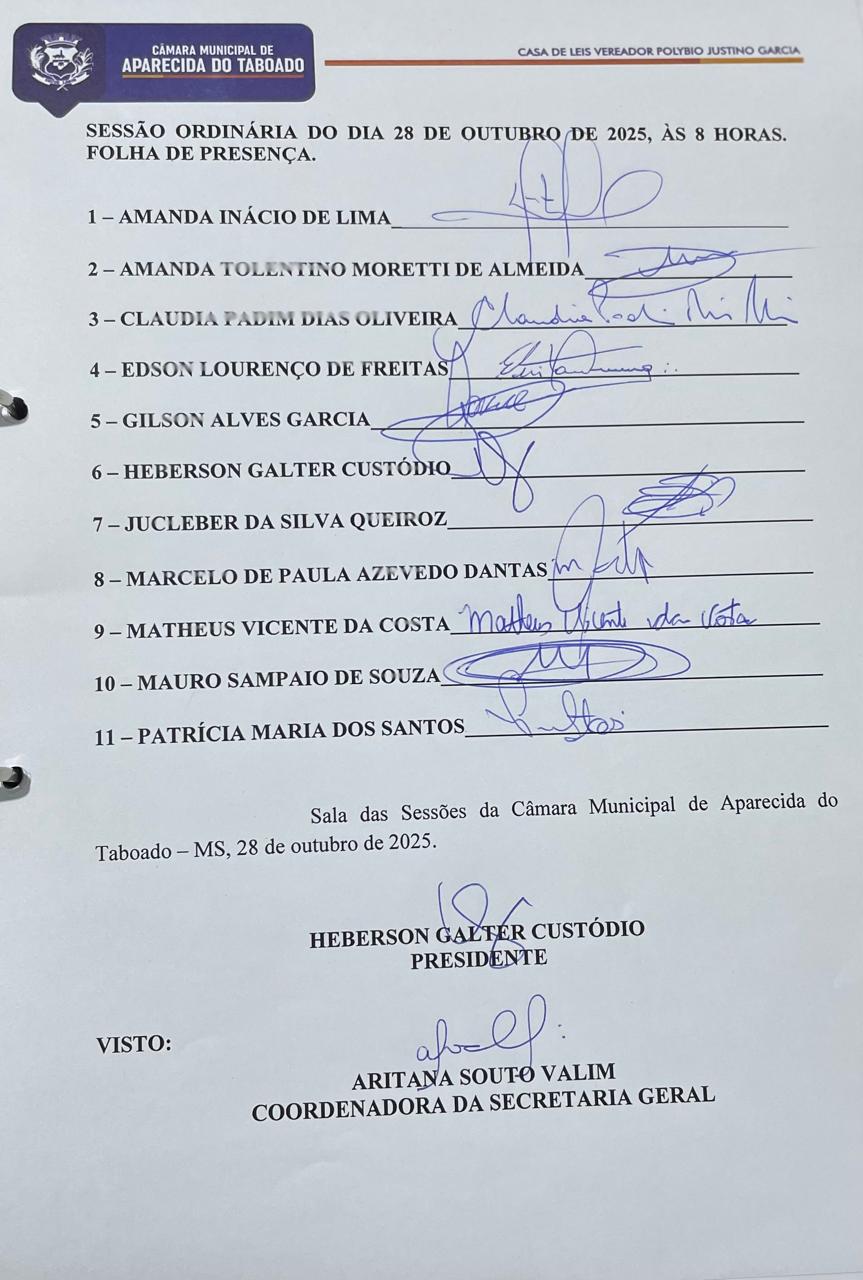 CÂMARA MUNICIPAL DE
APARECIDA DO TABOADO
CASA DE LEIS VEREADOR POLYBIO JUSTINO GARCIA
SESSÃO ORDINÁRIA DO DIA 28 DE OUTUBRO DE 2025, ÀS 8 HORAS.
FOLHA DE PRESENÇA.
1 – AMANDA INÁCIO DE LIMA
2 – AMANDA TOLENTINO MORETTI DE ALMEIDA
3 – CLAUDIA PADIM DIAS OLIVEIRA Claudia
4 – EDSON LOURENÇO DE FREITAS
5 – GILSON ALVES GARCIA
6 – HEBERSON GALTER CUSTÓDIO
7 – JUCLEBER DA SILVA QUEIROZ
8 – MARCELO DE PAULA AZEVEDO DANTAS
9 – MATHEUS VICENTE DA COSTA Matheus Vicente da Costa
10 – MAURO SAMPAIO DE SOUZA
11 – PATRÍCIA MARIA DOS SANTOS
Sala das Sessões da Câmara Municipal de Aparecida do
Taboado – MS, 28 de outubro de 2025.
HEBERSON GALTER CUSTÓDIO
PRESIDENTE
VISTO:
ARITANA SOUTO VALIM
COORDENADORA DA SECRETARIA GERAL